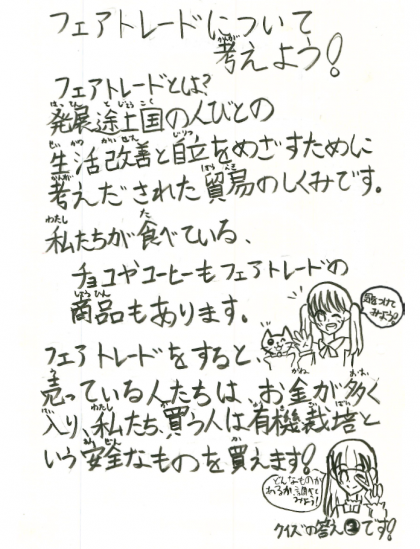 フェアトレードについて
考えよう!
フェアトレードとは?
発展途上国の人びとの
生活改善と自立をめざすために
考えだされた貿易のしくみです。
私たちが食べている、
チョコやコーヒーもフェアトレードの
商品もあります。
見つけて
みよう!
フェアトレードをすると、
売っている人たちは、お金が多く
入り、私たち、買う人は有機栽培と
いう安全なものを買えます!
どんなものか
みよう!
クイズの答え②です!